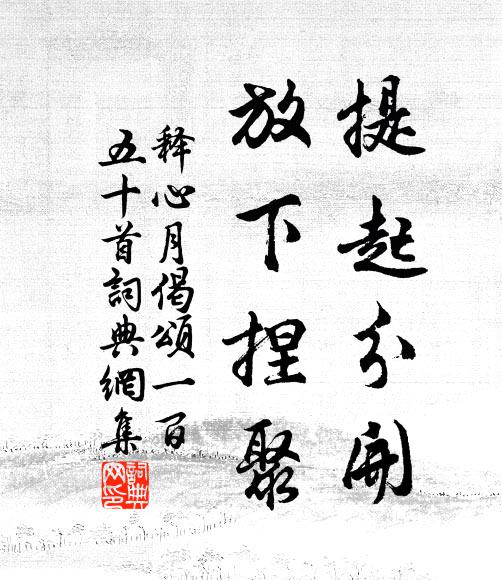 提起分開
放下捏聚
釋心月偈頌一百
五十首詞典網集
詞典
网印